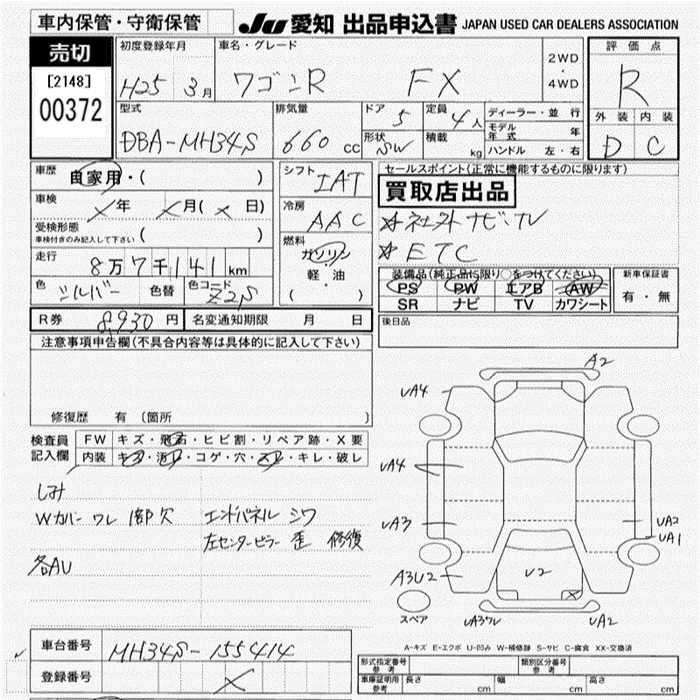 車内保管・守衛保管
JU 愛知 出品申込書 JAPAN USED CAR DEALERS ASSOCIATION
売切
[2148]
00372
初度登録年月
H25 3月
車名・グレード
ワゴンR FX
2WD
・
4WD
評価点
R
外装 内装
D C
型式
DBA-MH34S
排気量
660 cc
ドア
5
定員
4人
形状
SW
積載
kg
ディーラー・並行
モデル年式 年
ハンドル 左・右
車歴
自家用・( )
車検
×年 ×月(×日)
受検形態
車検付きのみ記入して下さい ( )
走行
8万7千141km
色
シルバー
色替
色コード
Z2S
シフト
IAT
冷房
AAC
燃料
ガソリン
・
軽・油
( )
セールスポイント(正常に機能するものに限ります)
買取店出品
☆社外ナビ・TV
☆ETC
装備品(純正品に限り○をつけてください)
PS PW エアB AW
SR ナビ TV カワシート
新車保証書
有・無
R券 8,930円 名変通知期限 月 日
後日品
注意事項申告欄(不具合内容等は具体的に記入して下さい)
修復歴 有 (箇所 )
検査員
記入欄
FW キズ・飛石・ヒビ割・リペア跡・X要
内装 キズ・汚れ・コゲ・穴・スレ・キレ・破レ
しみ
Wカバー ワレ 1部欠
エンドパネル シワ
左センターピラー 歪 修復
各AU
A2
UA4
UA4
UA3
A3U2
U2
UA2
UA1
UA3ワレ
UA2
スペア
A-キズ E-エクボ U-凹み W-補修跡 S-サビ C-腐食 XX-交換済
車台番号
MH34S-155414
登録番号
×
型式指定番号
参考
類別区分番号
参考
車庫証明用
参考
長さ cm 幅 cm 高さ cm